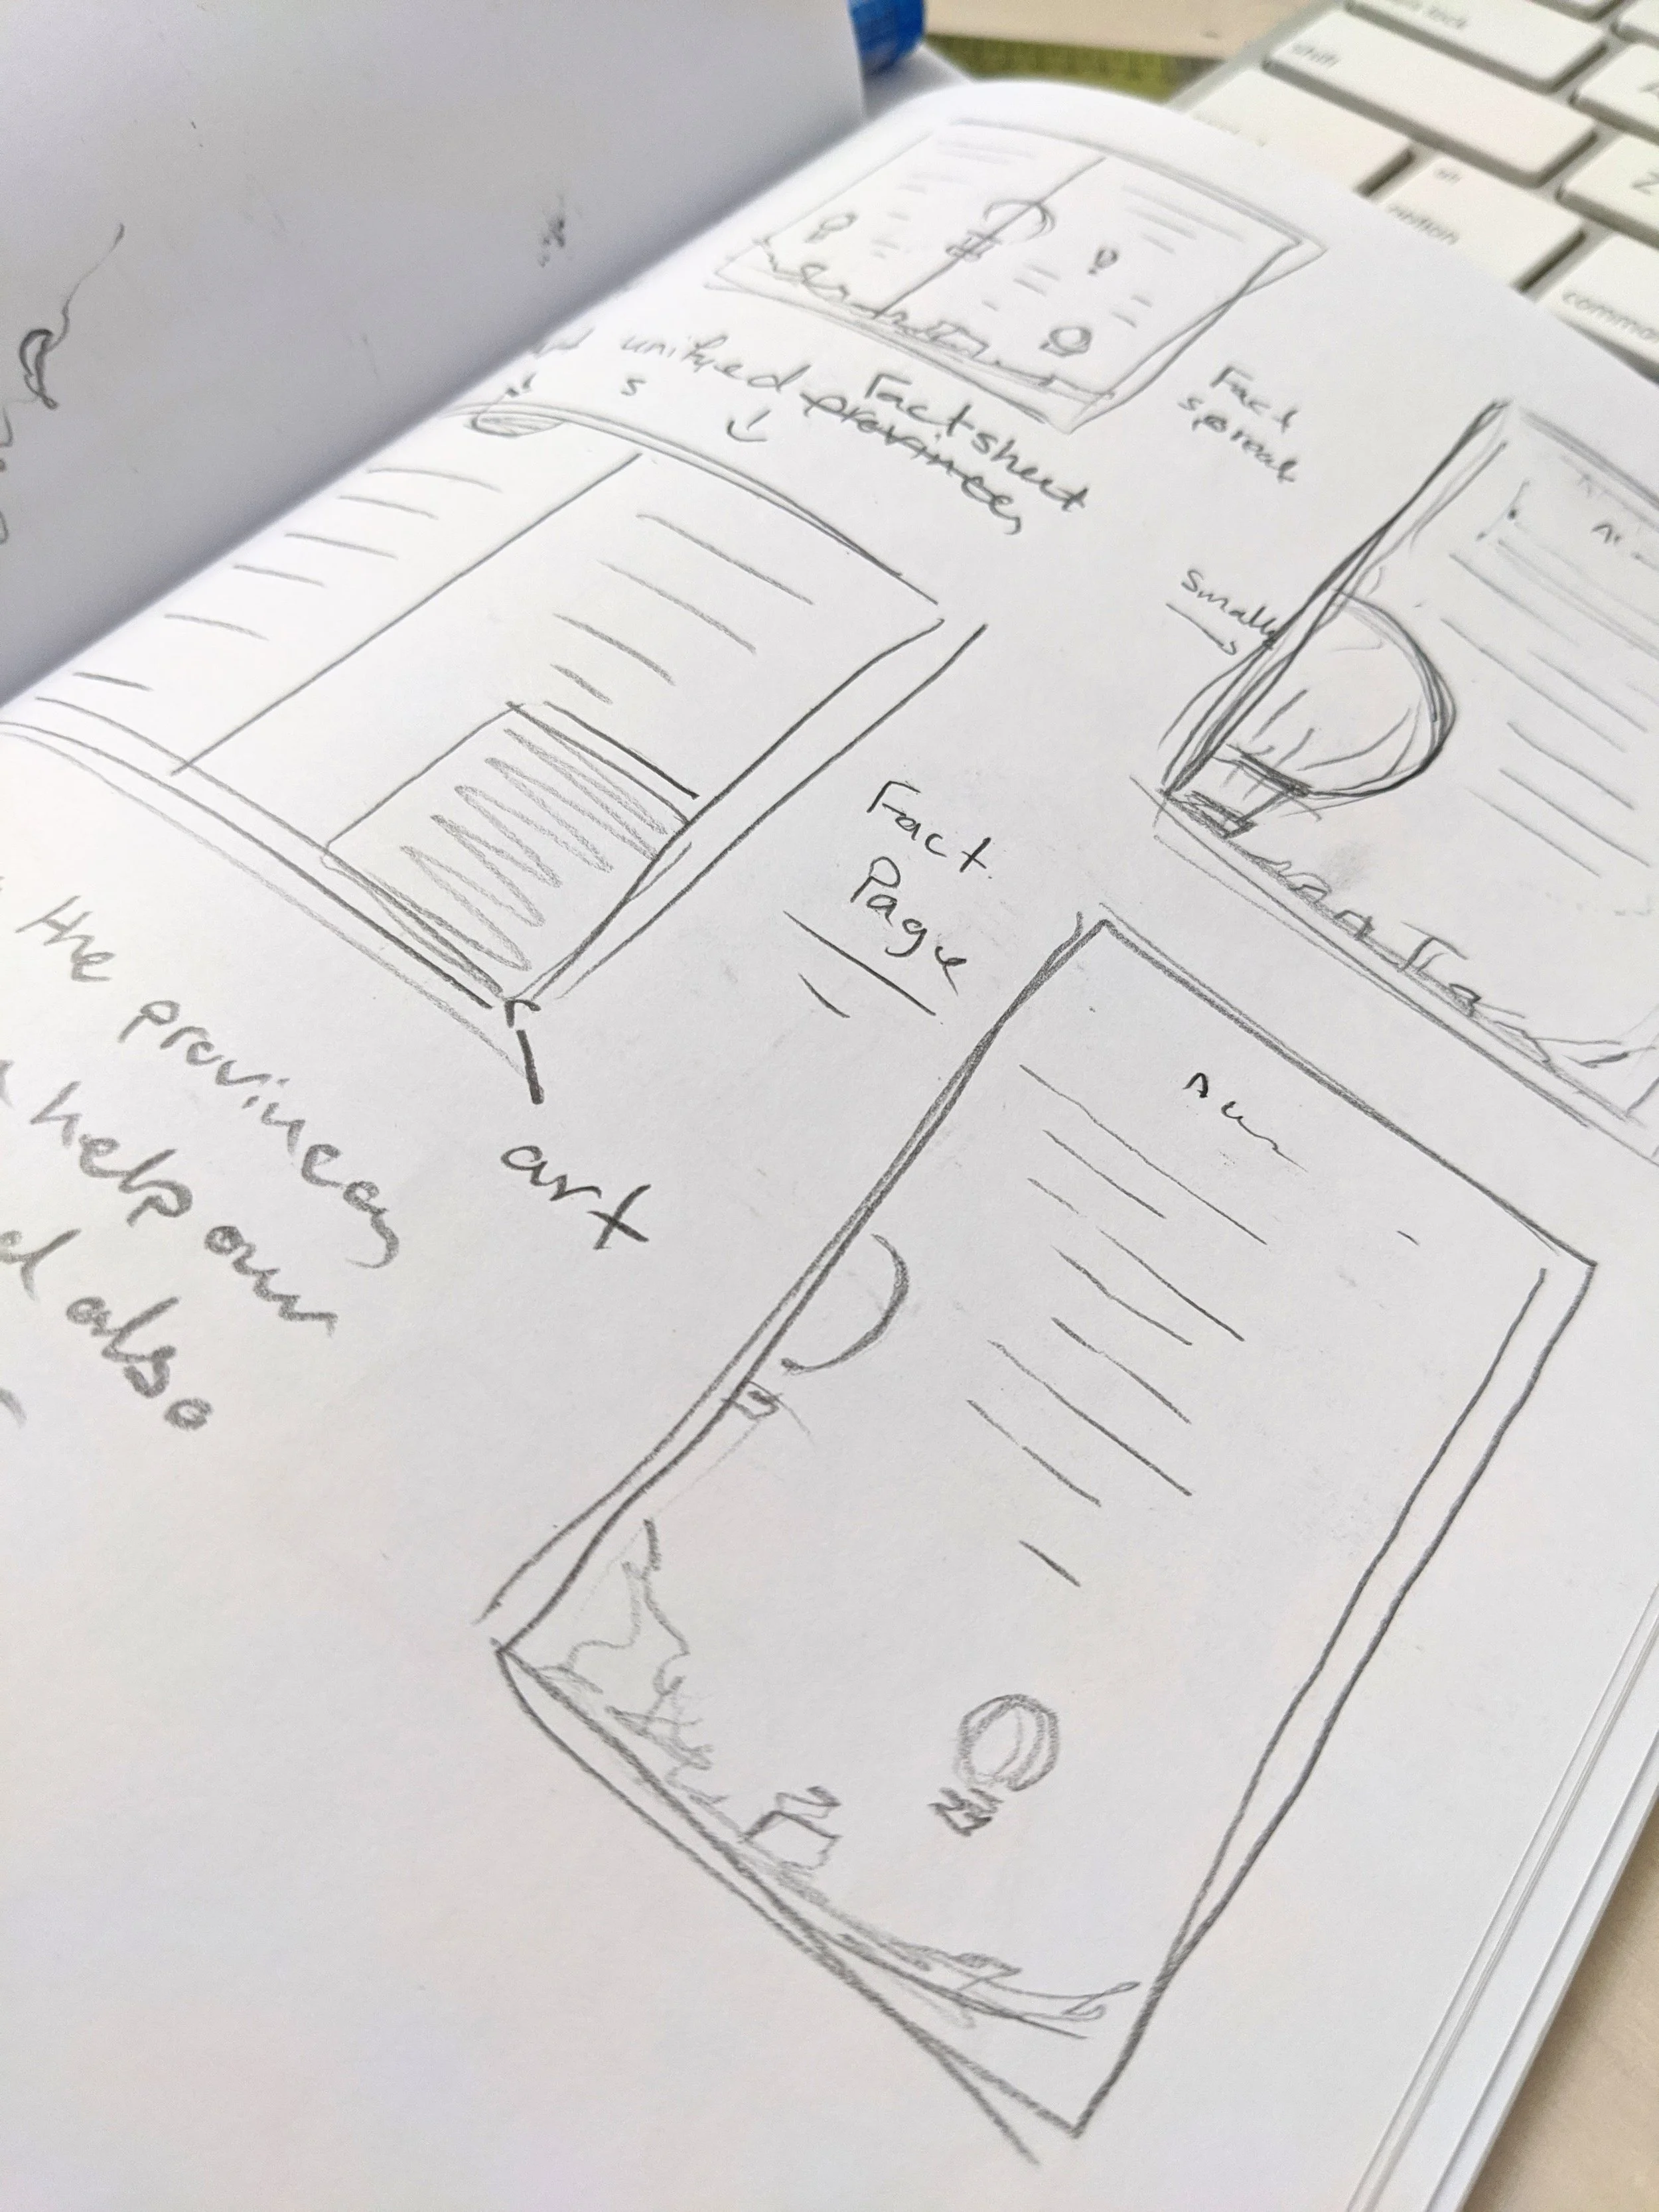 Fact
spread
unified provinces
s
Factsheet
smaller
Fact
Page
art
the provinces
help our
also
shift
option
comman
Z